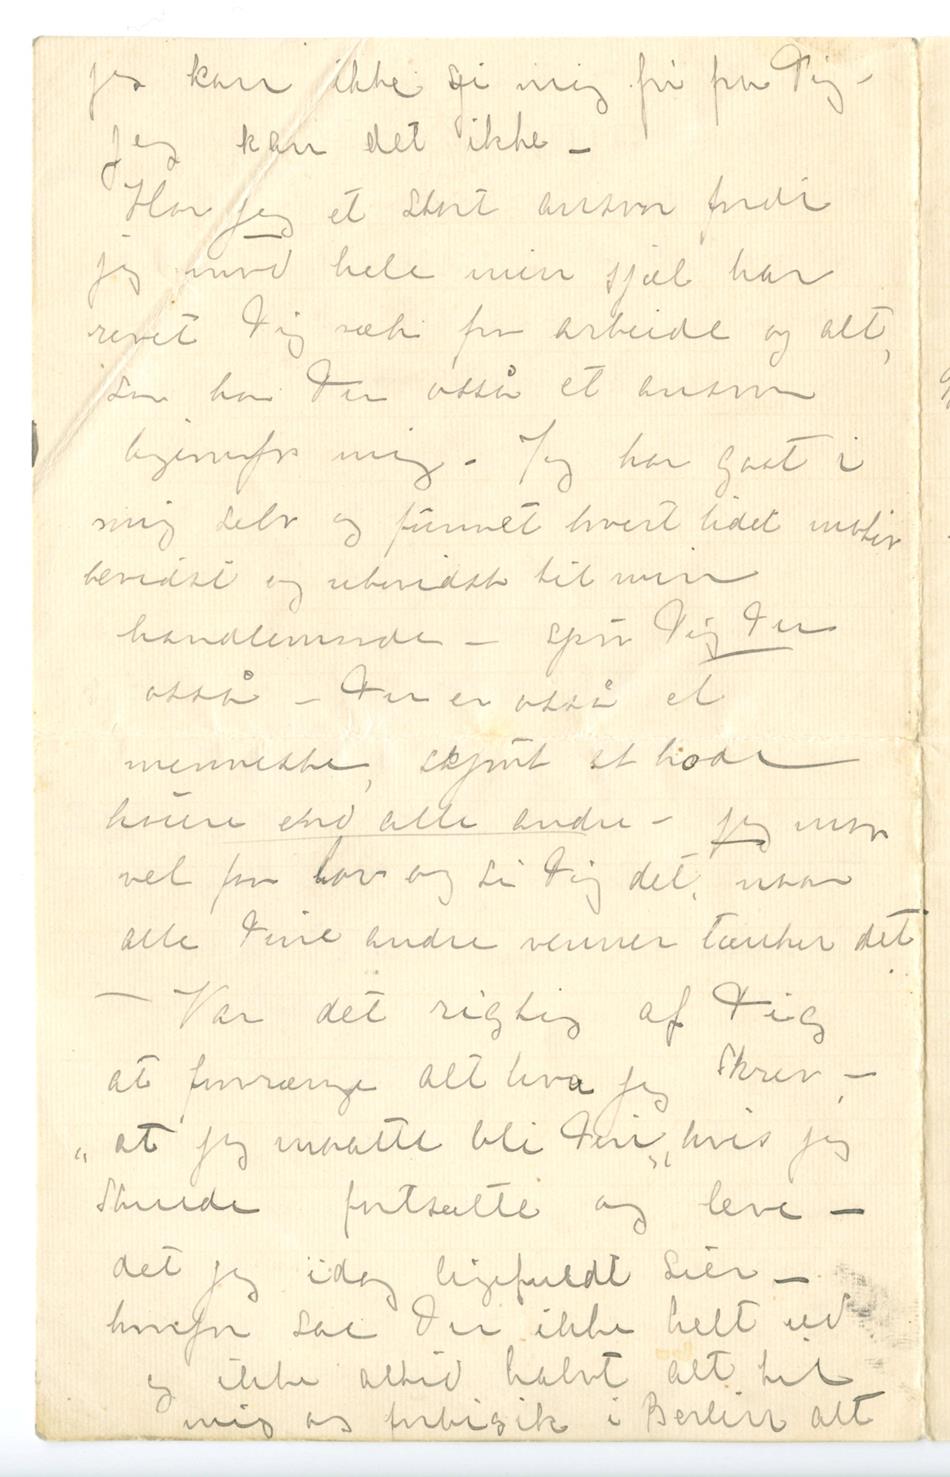 jeg kan ikke gi mig fri fra Dig –
jeg kan det ikke –
Har jeg et stort ansvar fordi
jeg med hele min sjæl har
revet Dig væk fra arbeide og alt,
saa har Du också et ansvar
ligeoverfor mig. – Jeg har gaat i
mig selv og funnet hvert lidet motiv
bevidst og ubevidst til min
handlemaade – spør Dig Du
också – Du er också et
menneske, skjønt et hode
høiere end alle andre – jeg maa
vel faa lov og si Dig det, naar
alle Dine andre venner tænker det
– Var det rigtig af Dig
at forvrænge alt hva jeg skrev, –
„at jeg maatte bli Din“, hvis jeg
skulde fortsætte og leve –
det jeg idag ligefuldt sier –
hvorfor saa Du ikke helt ud
og ikke altid halvt alt til
mig og forbigik i Berlin alt